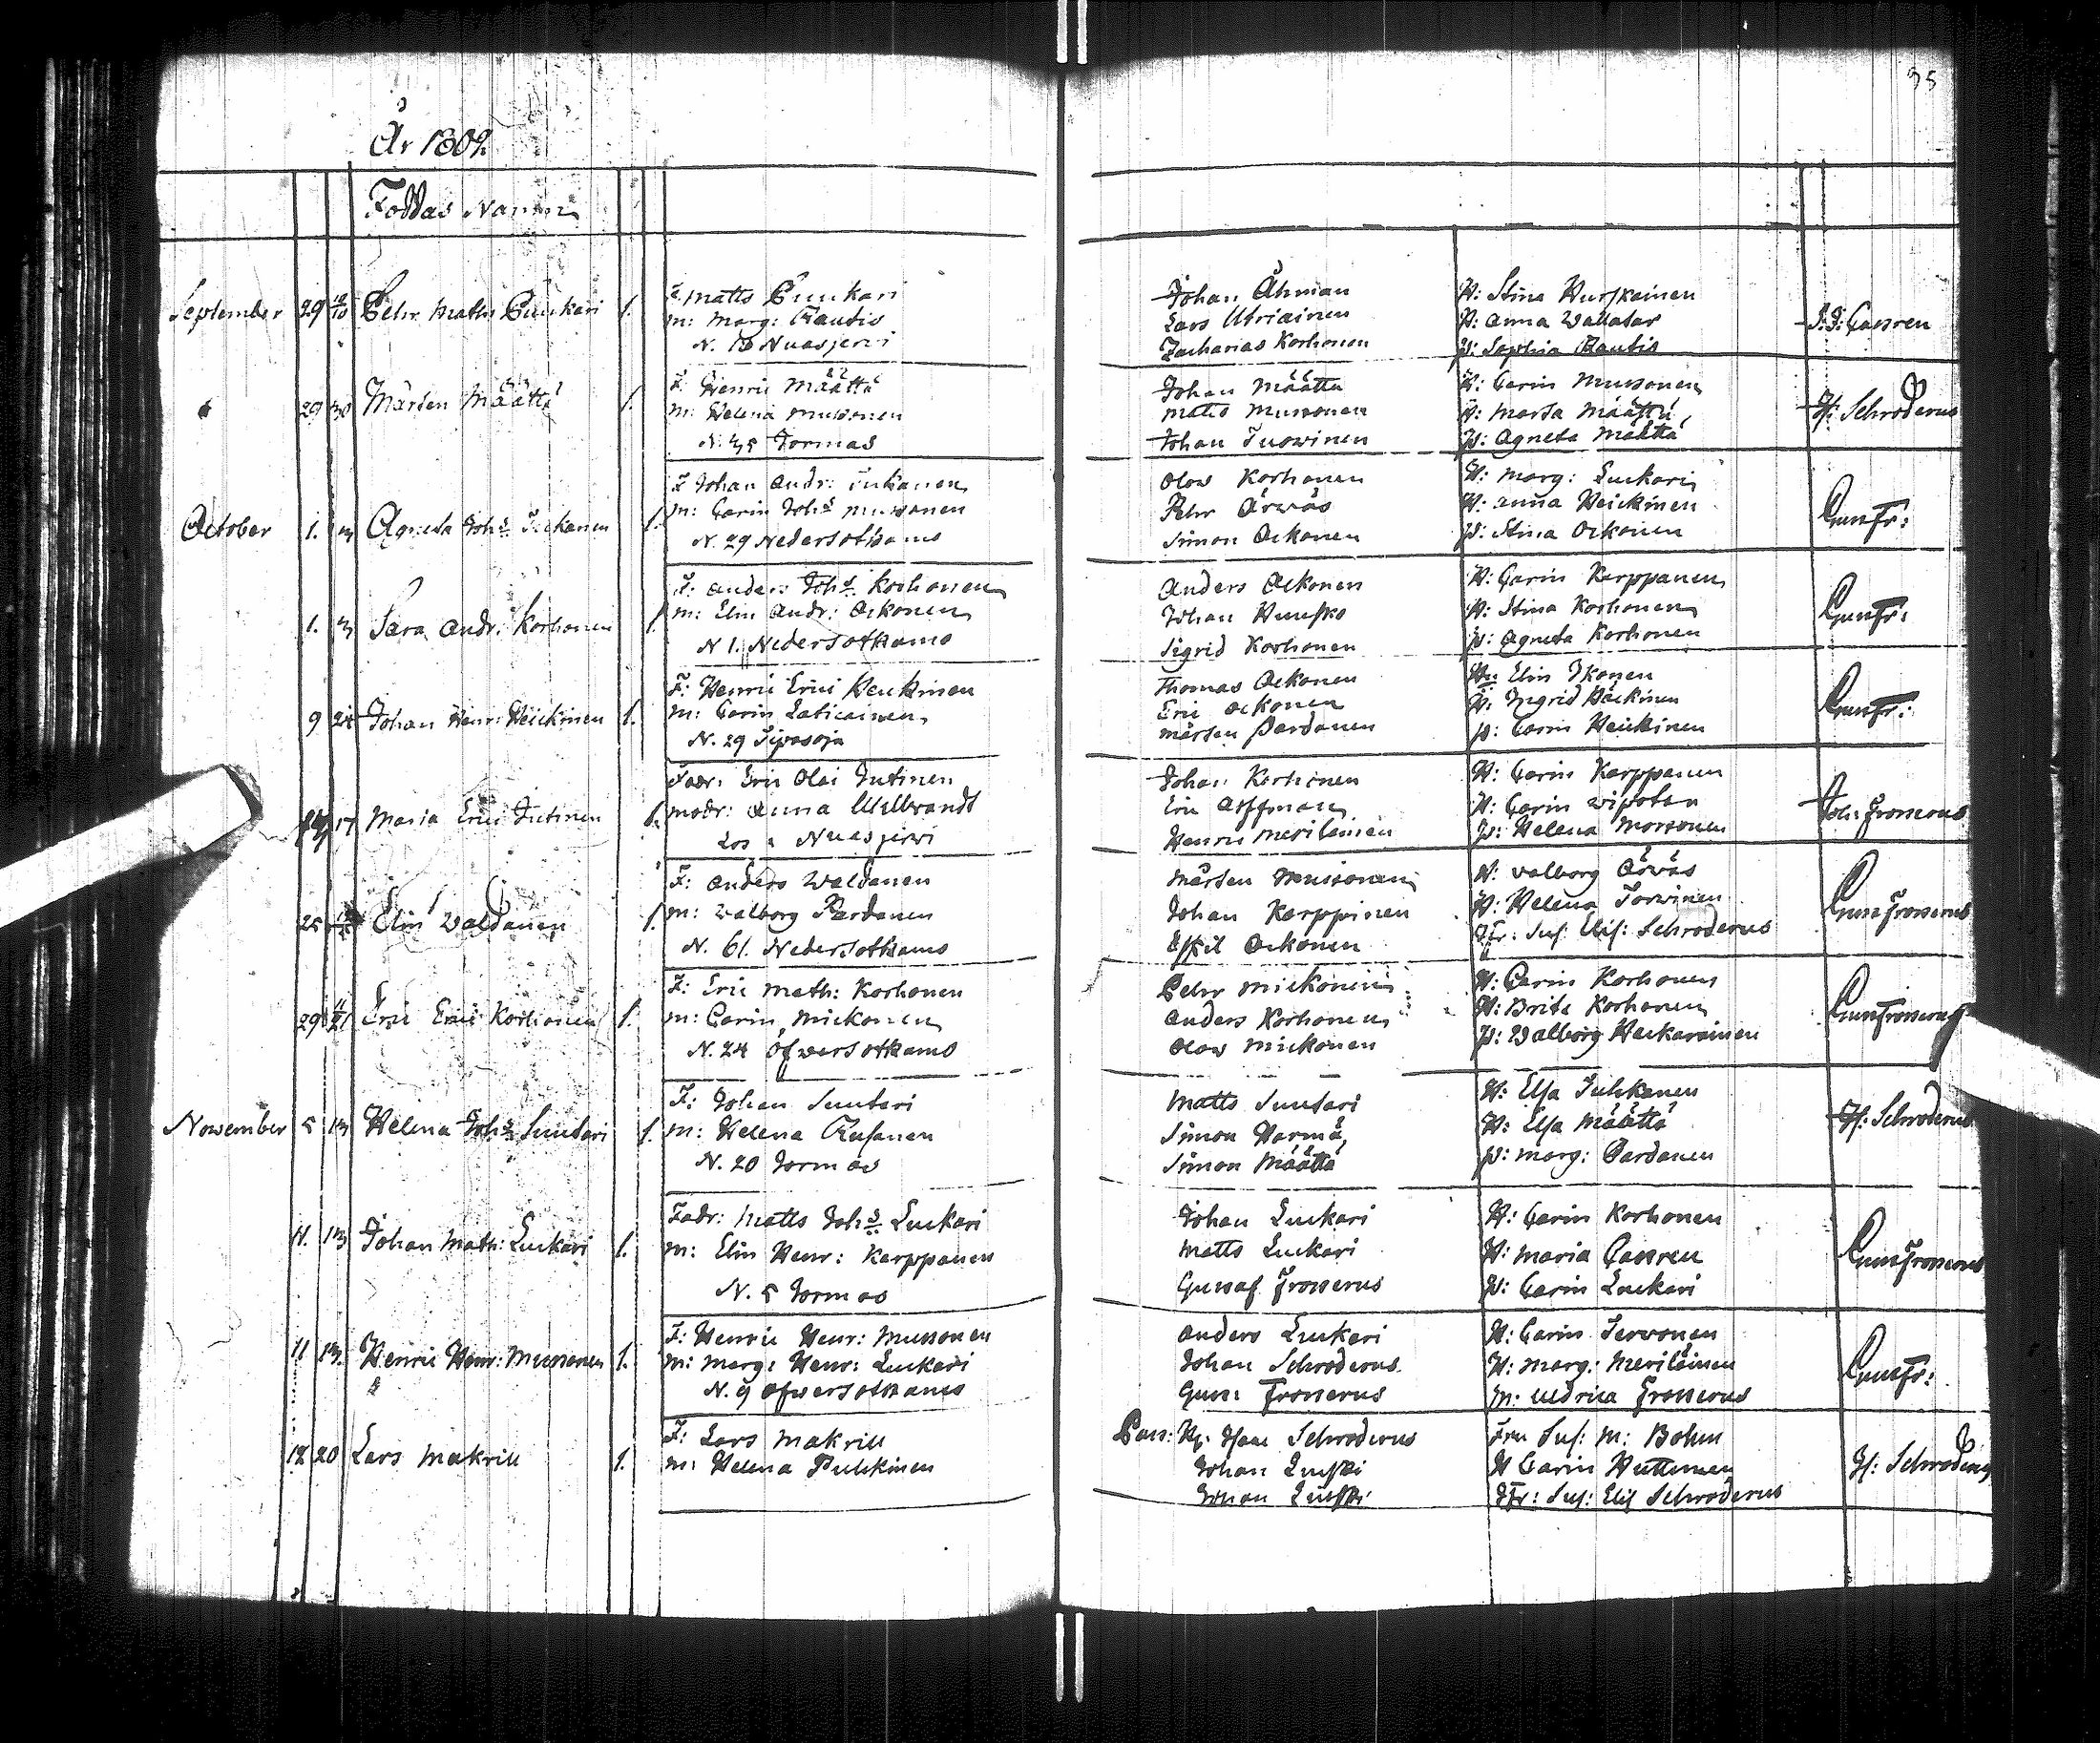 95
År 1802
Föddas Namn
September 29 12/10 Pehr Maths Puukari 1.
F: Matts Puukari
m: Marg: Rautio
N. 18 Nuasjerwi
Johan Åhman
Lars Utriainen
Zacharias Korhonen
H: Stina Hurskainen
H: Anna Wallatar
P: Sophia Rautio
J: J: Cajaren
" 29 30 Mårten Määttä 1.
F: Henric Määttä
m: Helena Mussonen
N. 35 Jormas
Johan Määttä
Matts Mussonen
Johan Tuowinen
H: Carin Mussonen
H: Marta Määttä
P: Agneta Määttä
Is: Schroderus
October 1. 3 Agneta Johs. 1.
F Johan Andr:
m: Carin Johs Mussonen
N. 29 Nedersotkamo
Olow Korhonen
Pehr Ärwäs
Simon Ockonen
H: Marg: Luukari
H: Anna Heickinen
P: Stina Ockonen
Gust Fr:
1. 3 Sara Andr: Korhonen 1.
F: Anders Johs. Korhonen
m: Elin Andr: Ockonen
N 1. Nedersotkamo
Anders Ockonen
Johan Hurusko
Sigrid Korhonen
H: Carin Karppanen
H: Stina Korhonen
P: Agneta Korhonen
Gust Fr:
9 24 Johan Henr: Heickinen 1.
F: Henric Erici Heickinen
m: Carin Laticainen
N. 29 Tipasoja
Thomas Ockonen
Eric Ockonen
Mårten Pardanen
Hu Elin Ikonen
H: Ingrid Häckinen
P: Carin Heickinen
Gust Fr:
17 Maria Erici Jutinen 1.
Fadr: Eric Olai Jutinen
modr: Anna Ullbrandt
Los i Nuasjerwi
Johan Korhonen
Eric Asffman
Henric Meriläinen
H: Carin Karppanen
H: Carin
P: Helena Morsonen
Joh: Froserus
25 Elin Waldanen 1.
F: Anders Waldanen
m: Walborg Pardanen
N. 61. Nedersotkamo
Mårten Mussonen
Johan Karppinen
Eskil Ockonen
H: Walborg Ärwäs
H: Helena Torwinen
Jfr: Sus: Elis: Schroderus
Gust Froserus
29 11/21 Eric Erici Korhonen 1.
F: Eric Math: Korhonen
m: Carin Mickonen
N. 24 Öfwersotkamo
Pehr Mickonen
Anders Korhonen
Olow Mickonen
H: Carin Korhonen
H: Brita Korhonen
P: Walborg Heckarainen
Gust Froserus
Nowember 5 13 Helena Johs. Suutari 1.
F: Johan Suutari
m: Helena Rusanen
N. 20 Jormas
Matts Suutari
Simon Harmä
Simon Määttä
H: Elsa Juhkanen
H: Elsa Määttä
P: Marg: Pardanen
Is: Schroderus
11. 13 Johan Math: Luukari 1.
Fadr: Matts Johs. Luukari
m: Elin Henr: Karppanen
N. 5 Jormas
Johan Luukari
Matts Luukari
Gustaf Froserus
H: Carin Korhonen
H: Maria Cajaren
P: Carin Luukari
Gust Froserus
11 13. Henric Henr: Mussonen 1.
F: Henric Henr: Mussonen
m: Marg: Henr: Luukari
N. 9 Öfwersotkamo
Anders Luukari
Johan Schroderus
Gust: Froserus
H: Carin Terwonen
H: Marg: Meriläinen
M: Uldrica Froserus
Gust Fr:
12 20 Lars Makrill 1.
F: Lars Makrill
m: Helena Pulkkinen
Isac Schroderus
Johan Luuski
Johan Luuski
Fru Sus: M: Bohm
H Carin Huttunen
Jfr: Sus: Elis Schroderus
Is: Schroderus